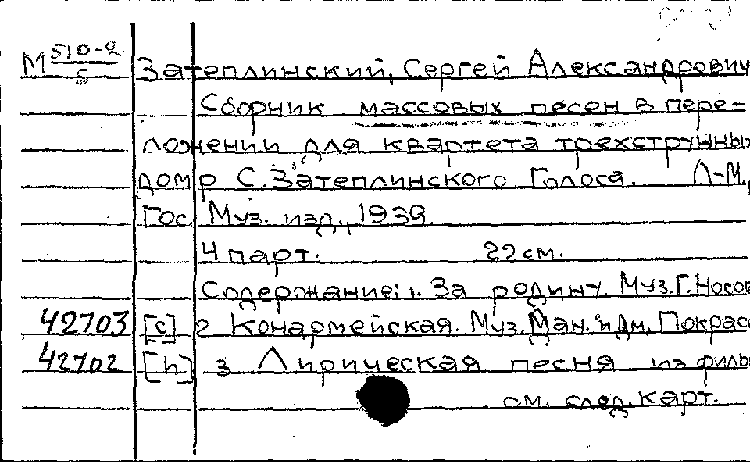 М 510-2/5 Затеплинский, Сергей Александрович
Сборник массовых песен в пере-
ложении для квартета трехструнных
домр С. Затеплинского Голоса. Л-М.,
Гос. Муз. изд., 1939
4 парт. 22 см.
Содержание: 1. За родину. Муз. Г. Носов
42703 [c] 2 Конармейская. Муз. Дан. и Дм. Покрасс
42702 [h] 3 Лирическая песня из филь
см. след. карт.